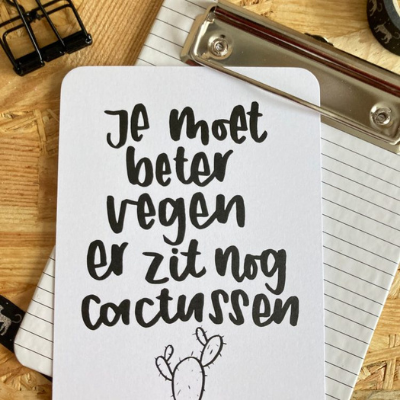 Je moet
beter
vegen
er zit nog
cactussen